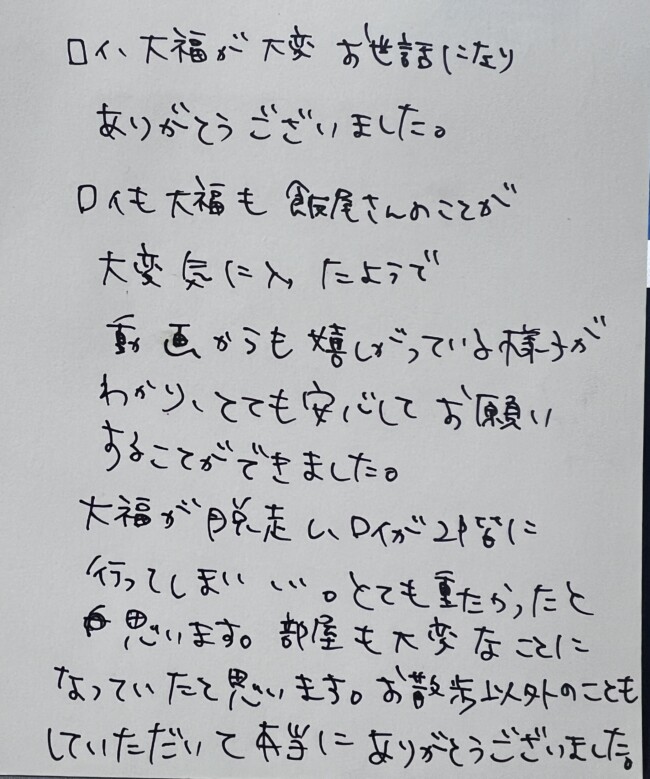 ロイ、大福が大変お世話になり
ありがとうございました。
ロイも大福も飯尾さんのことが
大変気に入ったようで
動画からも嬉しがっている様子が
わかり、とても安心してお願い
することができました。
大福が脱走し、ロイが2階に
行ってしまい…。とても重たかったと
思います。部屋も大変なことに
なっていたと思います。お散歩以外のことも
していただいて本当にありがとうございました。